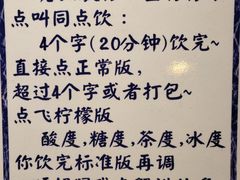 点叫同点饮：
4个字(20分钟)饮完~
直接点正常版，
超过4个字或者打包~
点飞柠檬版
酸度,糖度,茶度,冰度
你饮完标准版再调